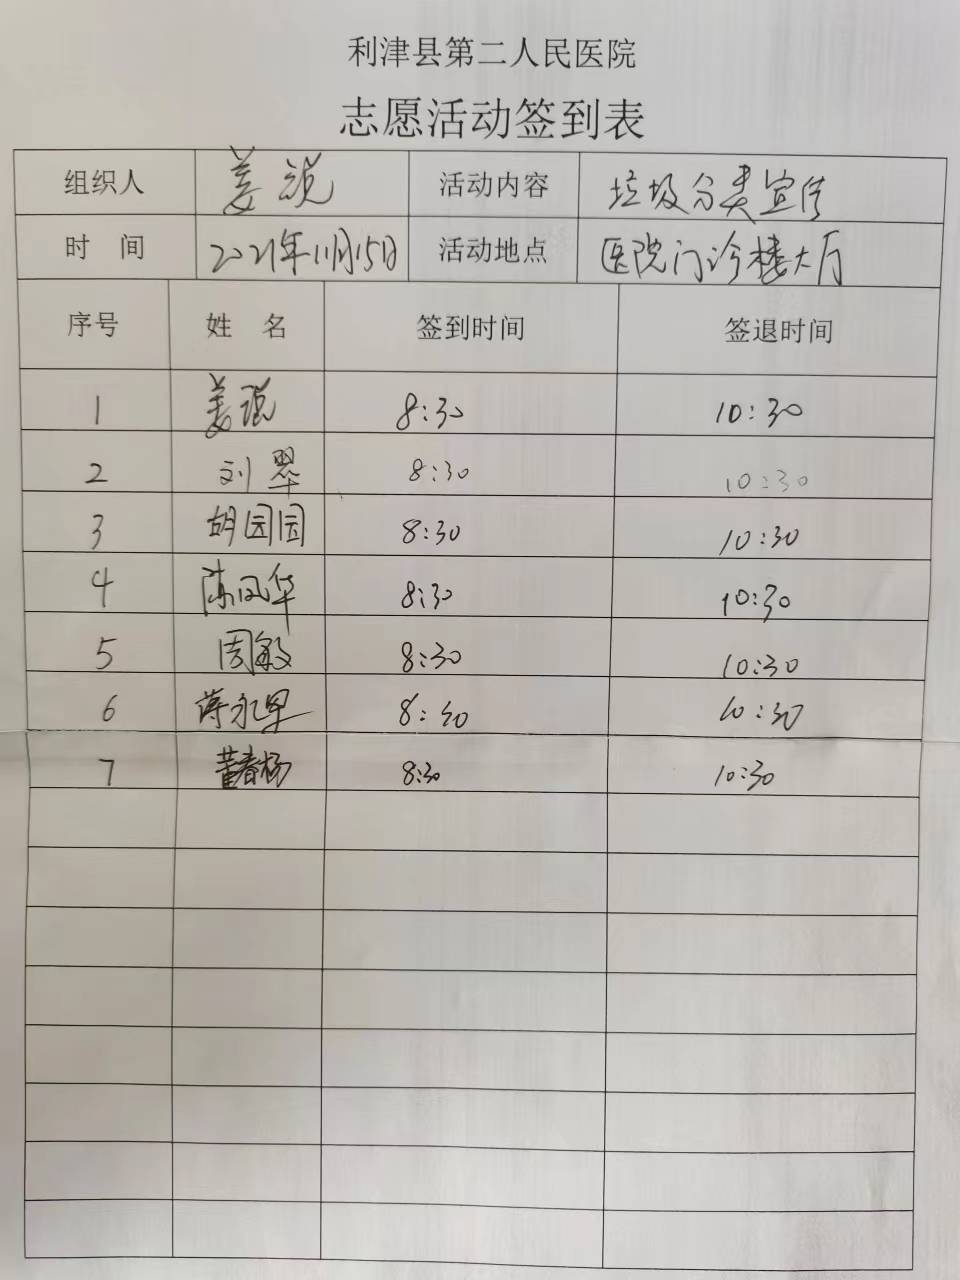 利津县第二人民医院
志愿活动签到表
组织人 姜 活动内容 垃圾分类宣传
时 间 2021年11月15日 活动地点 医院门诊楼大厅
序号 姓 名 签到时间 签退时间
1 姜 8:30 10:30
2 刘翠 8:30 10:30
3 胡园园 8:30 10:30
4 陈凤华 8:30 10:30
5 周敏 8:30 10:30
6 蒋永 8:30 10:30
7 董春杨 8:30 10:30